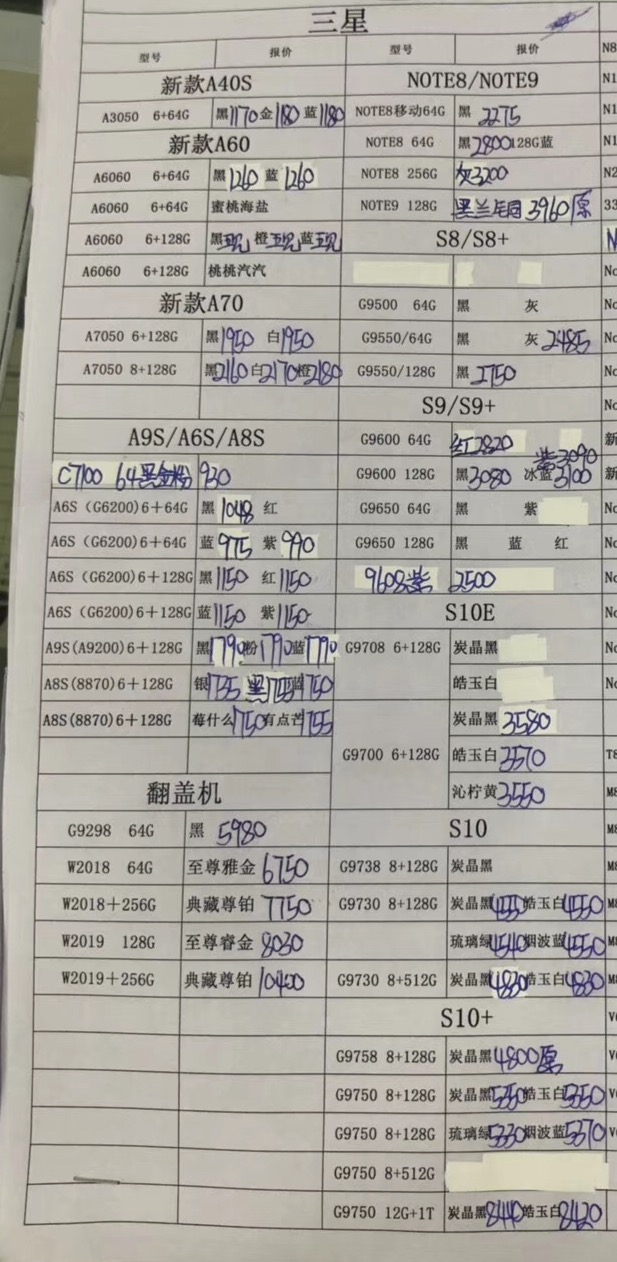 三星
型号 报价 型号 报价
新款A40S NOTE8/NOTE9
A3050 6+64G 黑1170金1180蓝1180 NOTE8移动64G 黑 2275
新款A60 NOTE8 64G 黑2800128G蓝
A6060 6+64G 黑1260 蓝1260 NOTE8 256G 灰3200
A6060 6+64G 蜜桃海盐 NOTE9 128G 3960原
A6060 6+128G 黑 橙 蓝 S8/S8+
A6060 6+128G 桃桃汽汽
新款A70 G9500 64G 黑 灰
A7050 6+128G 黑1950 白1950 G9550/64G 黑 灰2485
A7050 8+128G 黑2160白2170橙2180 G9550/128G 黑 2750
S9/S9+
A9S/A6S/A8S G9600 64G 红2820
C7100 64黑金粉 930 G9600 128G 黑3080 冰蓝3100 紫3090
A6S（G6200)6+64G 黑1048 红 G9650 64G 黑 紫
A6S（G6200)6+64G 蓝975 紫990 G9650 128G 黑 蓝 红
A6S（G6200)6+128G 黑1150 红1150 9608紫 2500
A6S（G6200)6+128G 蓝1150 紫1150 S10E
A9S(A9200)6+128G 黑1790粉1790蓝1790 G9708 6+128G 炭晶黑
A8S(8870)6+128G 银735 黑755蓝750 皓玉白
A8S(8870)6+128G 莓什么750有点芒755 炭晶黑3580
G9700 6+128G 皓玉白3570
翻盖机 沁柠黄3550
G9298 64G 黑 5980 S10
W2018 64G 至尊雅金6750 G9738 8+128G 炭晶黑
W2018+256G 典藏尊铂7750 G9730 8+128G 炭晶黑 皓玉白4550
W2019 128G 至尊睿金8030 琉璃绿4540烟波蓝4550
W2019+256G 典藏尊铂10400 G9730 8+512G 炭晶黑4830皓玉白4830
S10+
G9758 8+128G 炭晶黑4800原
G9750 8+128G 炭晶黑5350皓玉白5350
G9750 8+128G 琉璃绿5330烟波蓝5370
G9750 8+512G
G9750 12G+1T 炭晶黑8440皓玉白8420